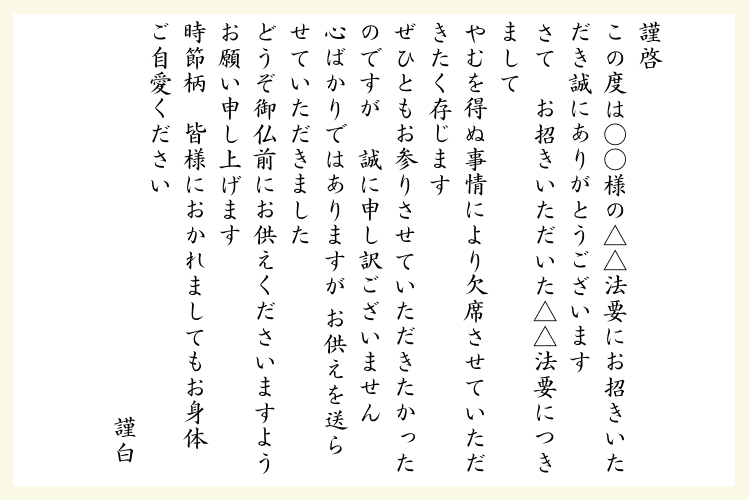 謹啓
この度は○○様の△△法要にお招きいた
だき誠にありがとうございます
さて　お招きいただいた△△法要につき
まして
やむを得ぬ事情により欠席させていただ
きたく存じます
ぜひともお参りさせていただきたかった
のですが　誠に申し訳ございません
心ばかりではありますが お供えを送ら
せていただきました
どうぞ御仏前にお供えくださいますよう
お願い申し上げます
時節柄　皆様におかれましてもお身体
ご自愛ください
謹白